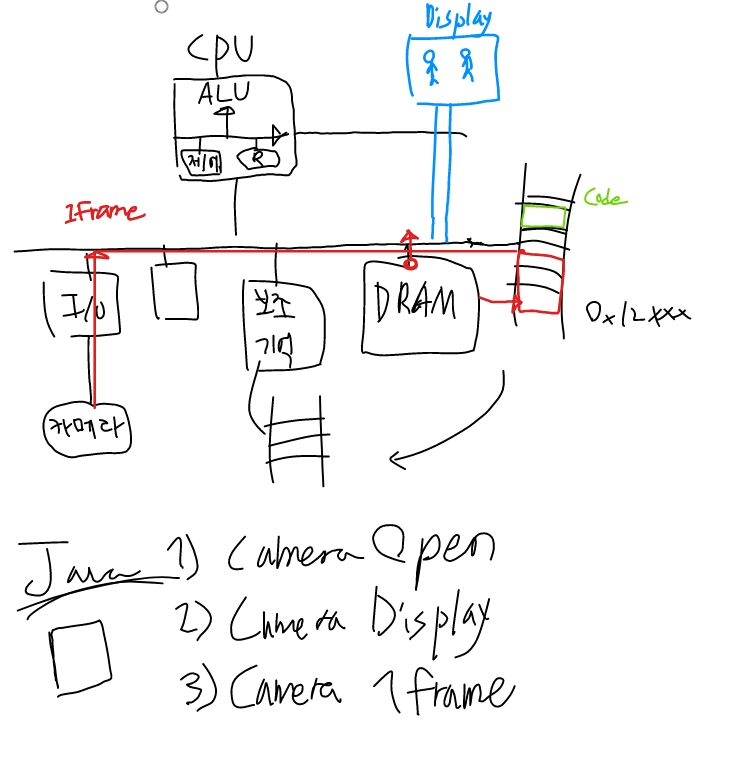 Display
CPU
ALU
제어
R
Code
1Frame
I/O
보조
기억
DRAM
0x12xxx
카메라
Java
1) Camera Open
2) Camera Display
3) Camera 1frame